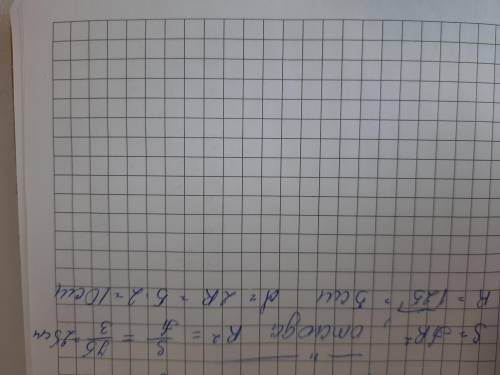 S = πR² отсюда R² = S/π = 75/3 = 25см
R = √25 = 5см d = 2R = 5·2 = 10см